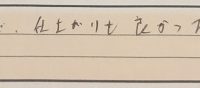 仕上がりも良かっ